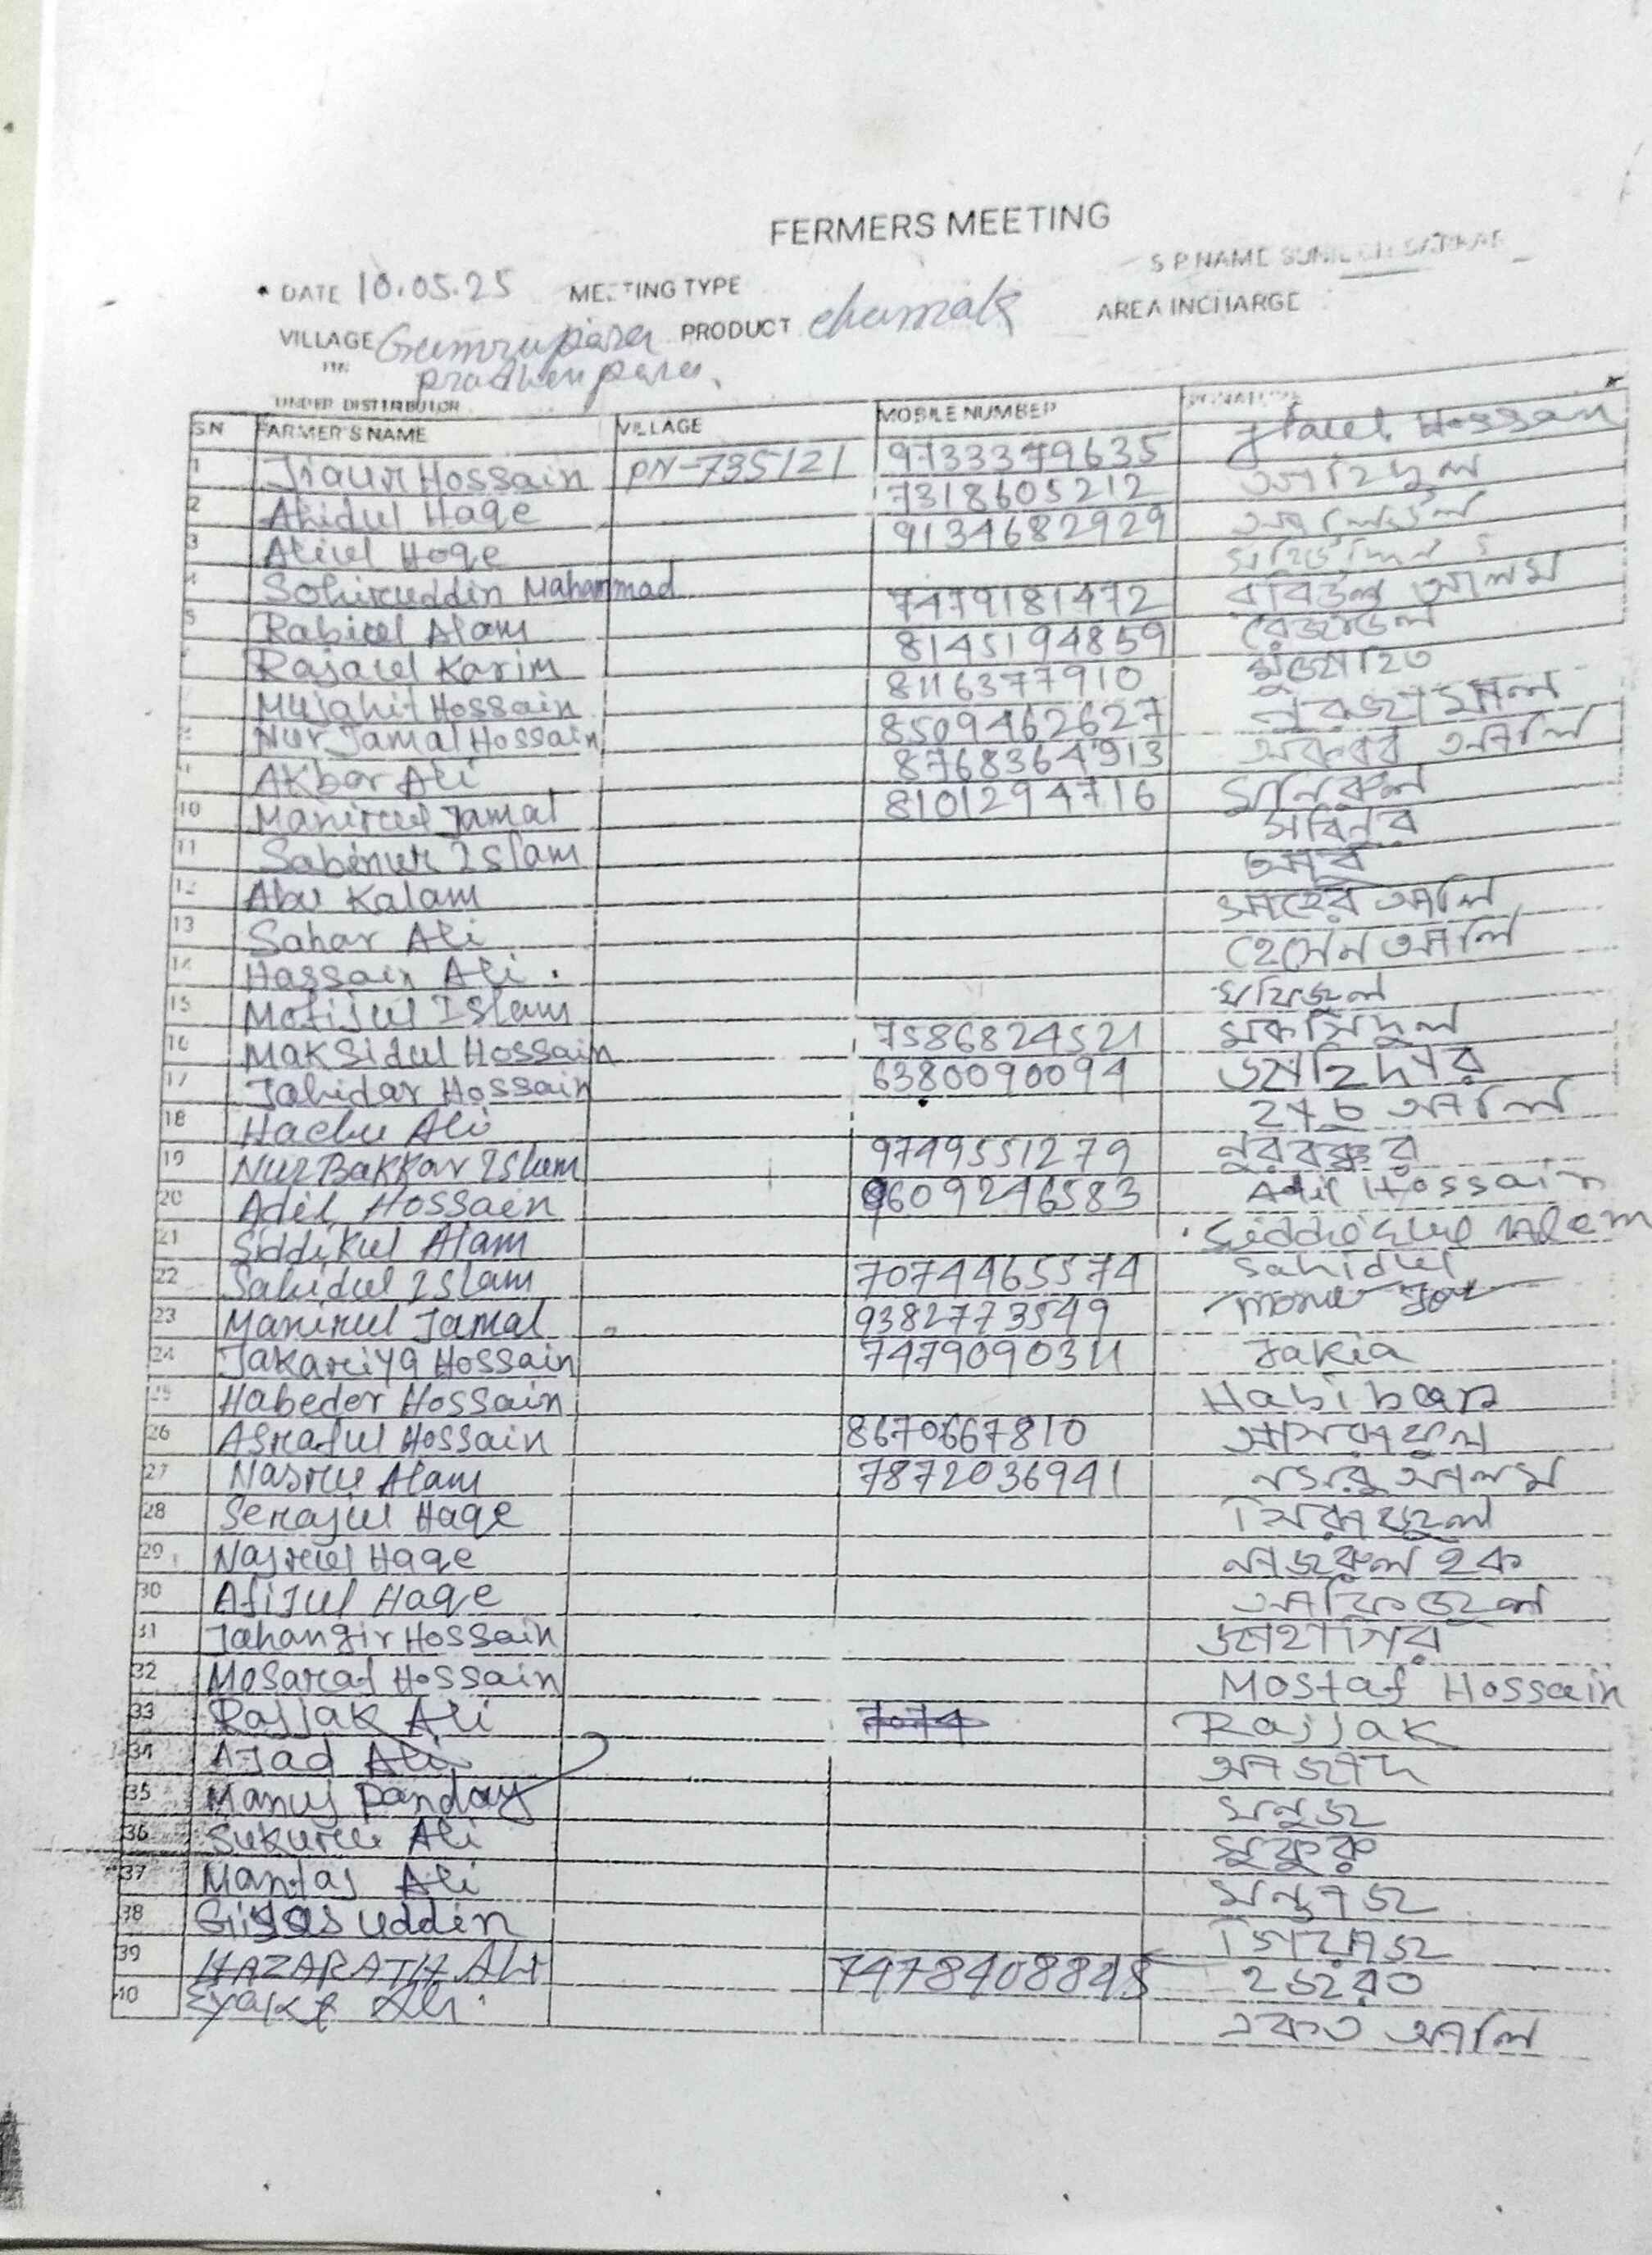 FERMERS MEETING
S P NAME
DATE 10.05.25 MEETING TYPE
VILLAGE Gumrupara PRODUCT chamak AREA INCHARGE
pradhenpara,
UNDER DISTTRIBUTOR
SN FARMER'S NAME VILLAGE MOBILE NUMBER SIGNATURE
1 Jiaur Hossain PN-735121 9733379635 Hossain
2 Ahidul Haqe 7318605212 আহিদুল
3 Aliul Hoqe 9134682929 আলিউল
4 Sohiruddin Mahammad
5 Rabiul Alam 7479181472 রবিউল আলম
Rajaul Karim 8145194859 রেজাউল
Mujahit Hossain 8116377910 মুজাহিত
Nur Jamal Hossain 8509462627 নুরজামাল
Akbar Ali 8768364913 আকবর আলি
10 Manirul Jamal 8101294716 মনিরুল
11 Sabinur Islam সাবিনুর
12 Abu Kalam আবু
13 Sahar Ali সাহের আলি
14 Hassain Ali হোসেন আলি
15 Mofijul Islam মফিজুল
16 Maksidul Hossain 7586824521 মকসিদুল
17 Jahidar Hossain 6380090094 জাহিদার
18 Hachu Ali হাচু আলি
19 Nur Bakkar Islam 9749551279 নুরবক্কর
20 Adil Hossain 9609246583 Adil Hossain
21 Siddikul Alam Siddiqul Alam
22 Sahidul Islam 7074465574 Sahidul
23 Manirul Jamal 9382773549
24 Jakariya Hossain 7479090311 Jakia
25 Habeder Hossain
26 Asraful Hossain 8670667810 আসরাফুল
27 Nasru Alam 7872036941 নসরু আলম
28 Serajul Haqe সিরাজুল
29 Najrul Haqe নাজরুল হক
30 Afijul Haqe আফিজুল
31 Jahangir Hossain জাহাগির
32 Mosaraf Hossain Mostaf Hossain
33 Rajjak Ali 7074 Rajjak
34 Ajad Ali আজাদ
35 Manuj Panday মনুজ
36 Sukuru Ali সুকুরু
37 Mantaj Ali মন্তাজ
38 Giyas uddin গিয়াজ
39 HAZARATH Ali 7478408845 হজরত
40 একত আলি